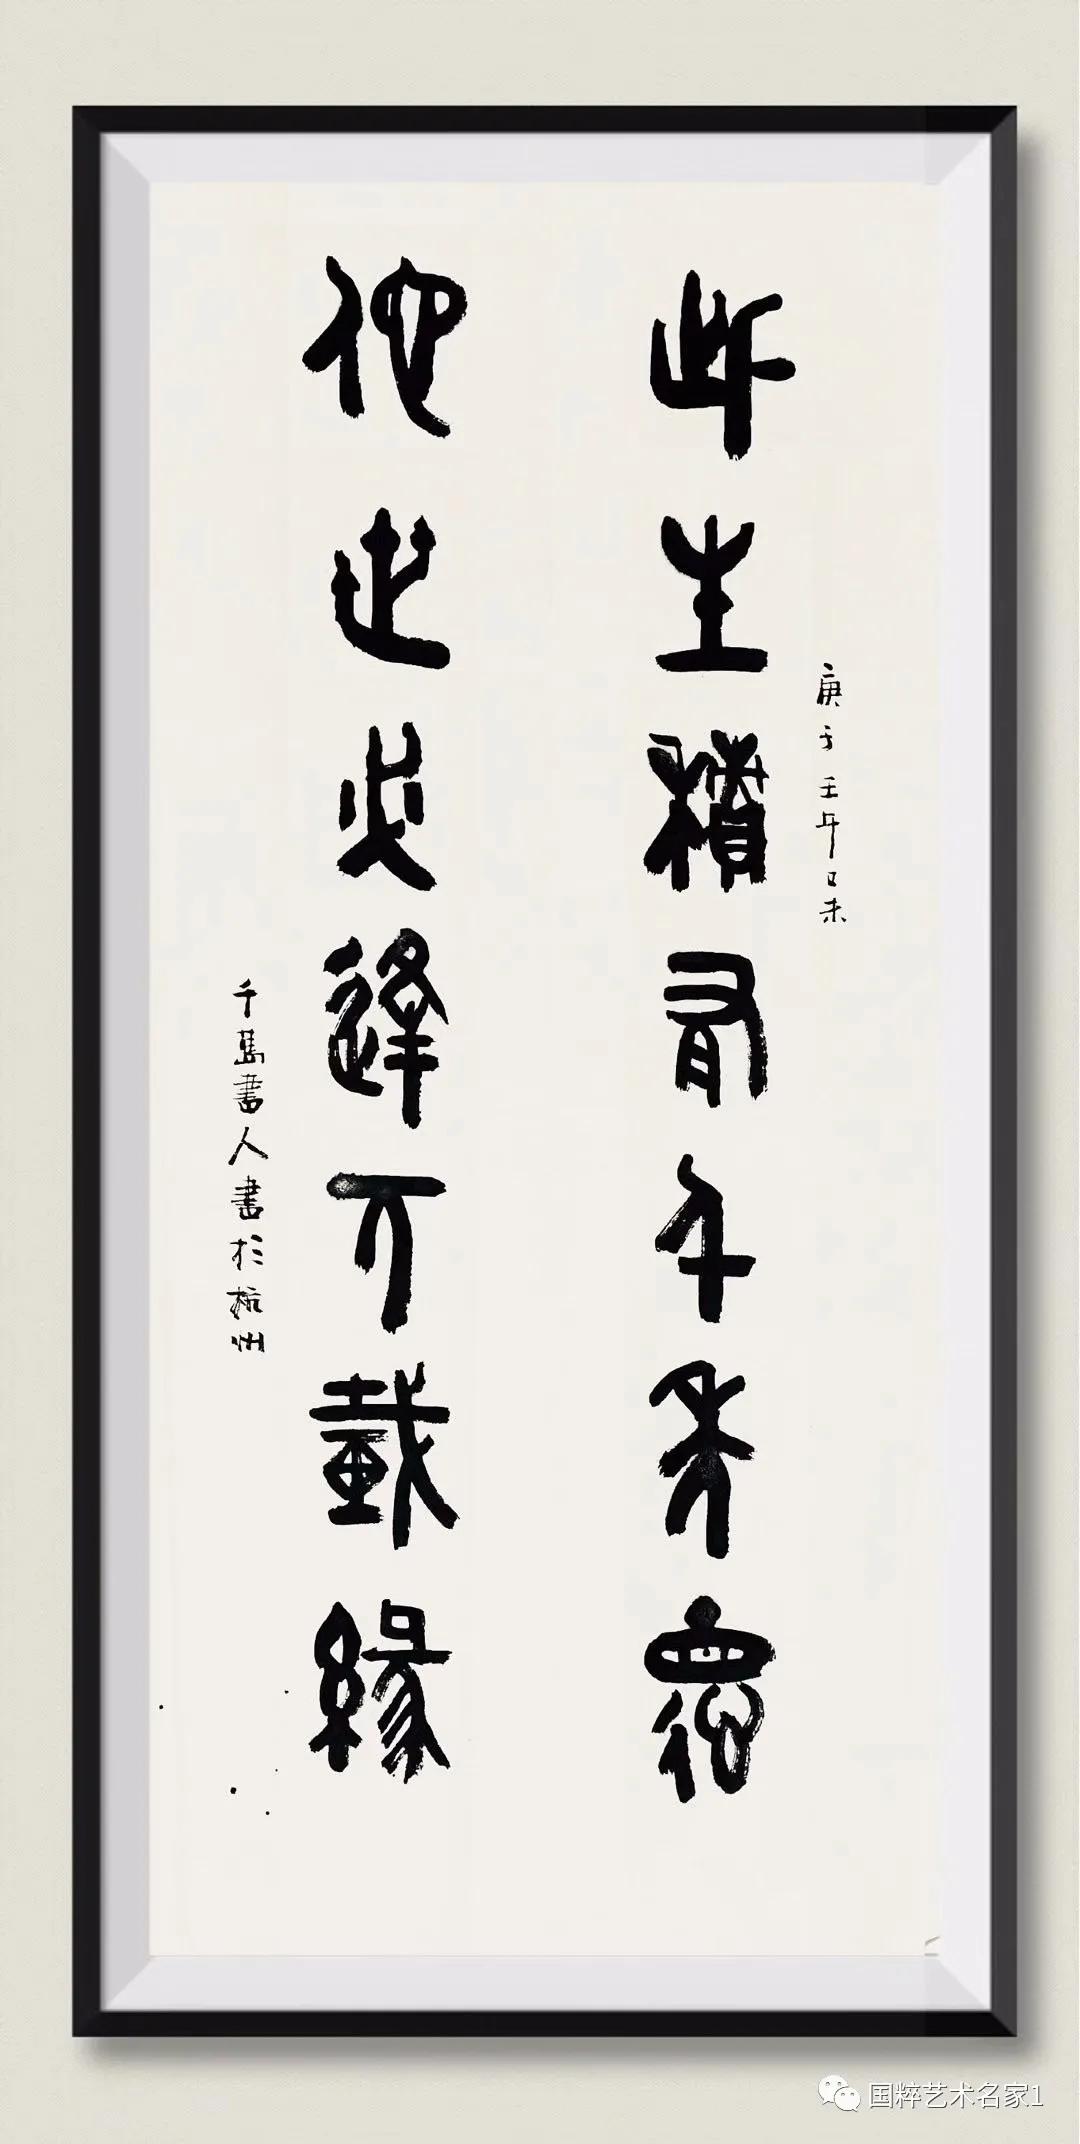 庚子壬午己未
此生積有千年德
他世必逢万載緣
千島書人書於杭州
国粹艺术名家1